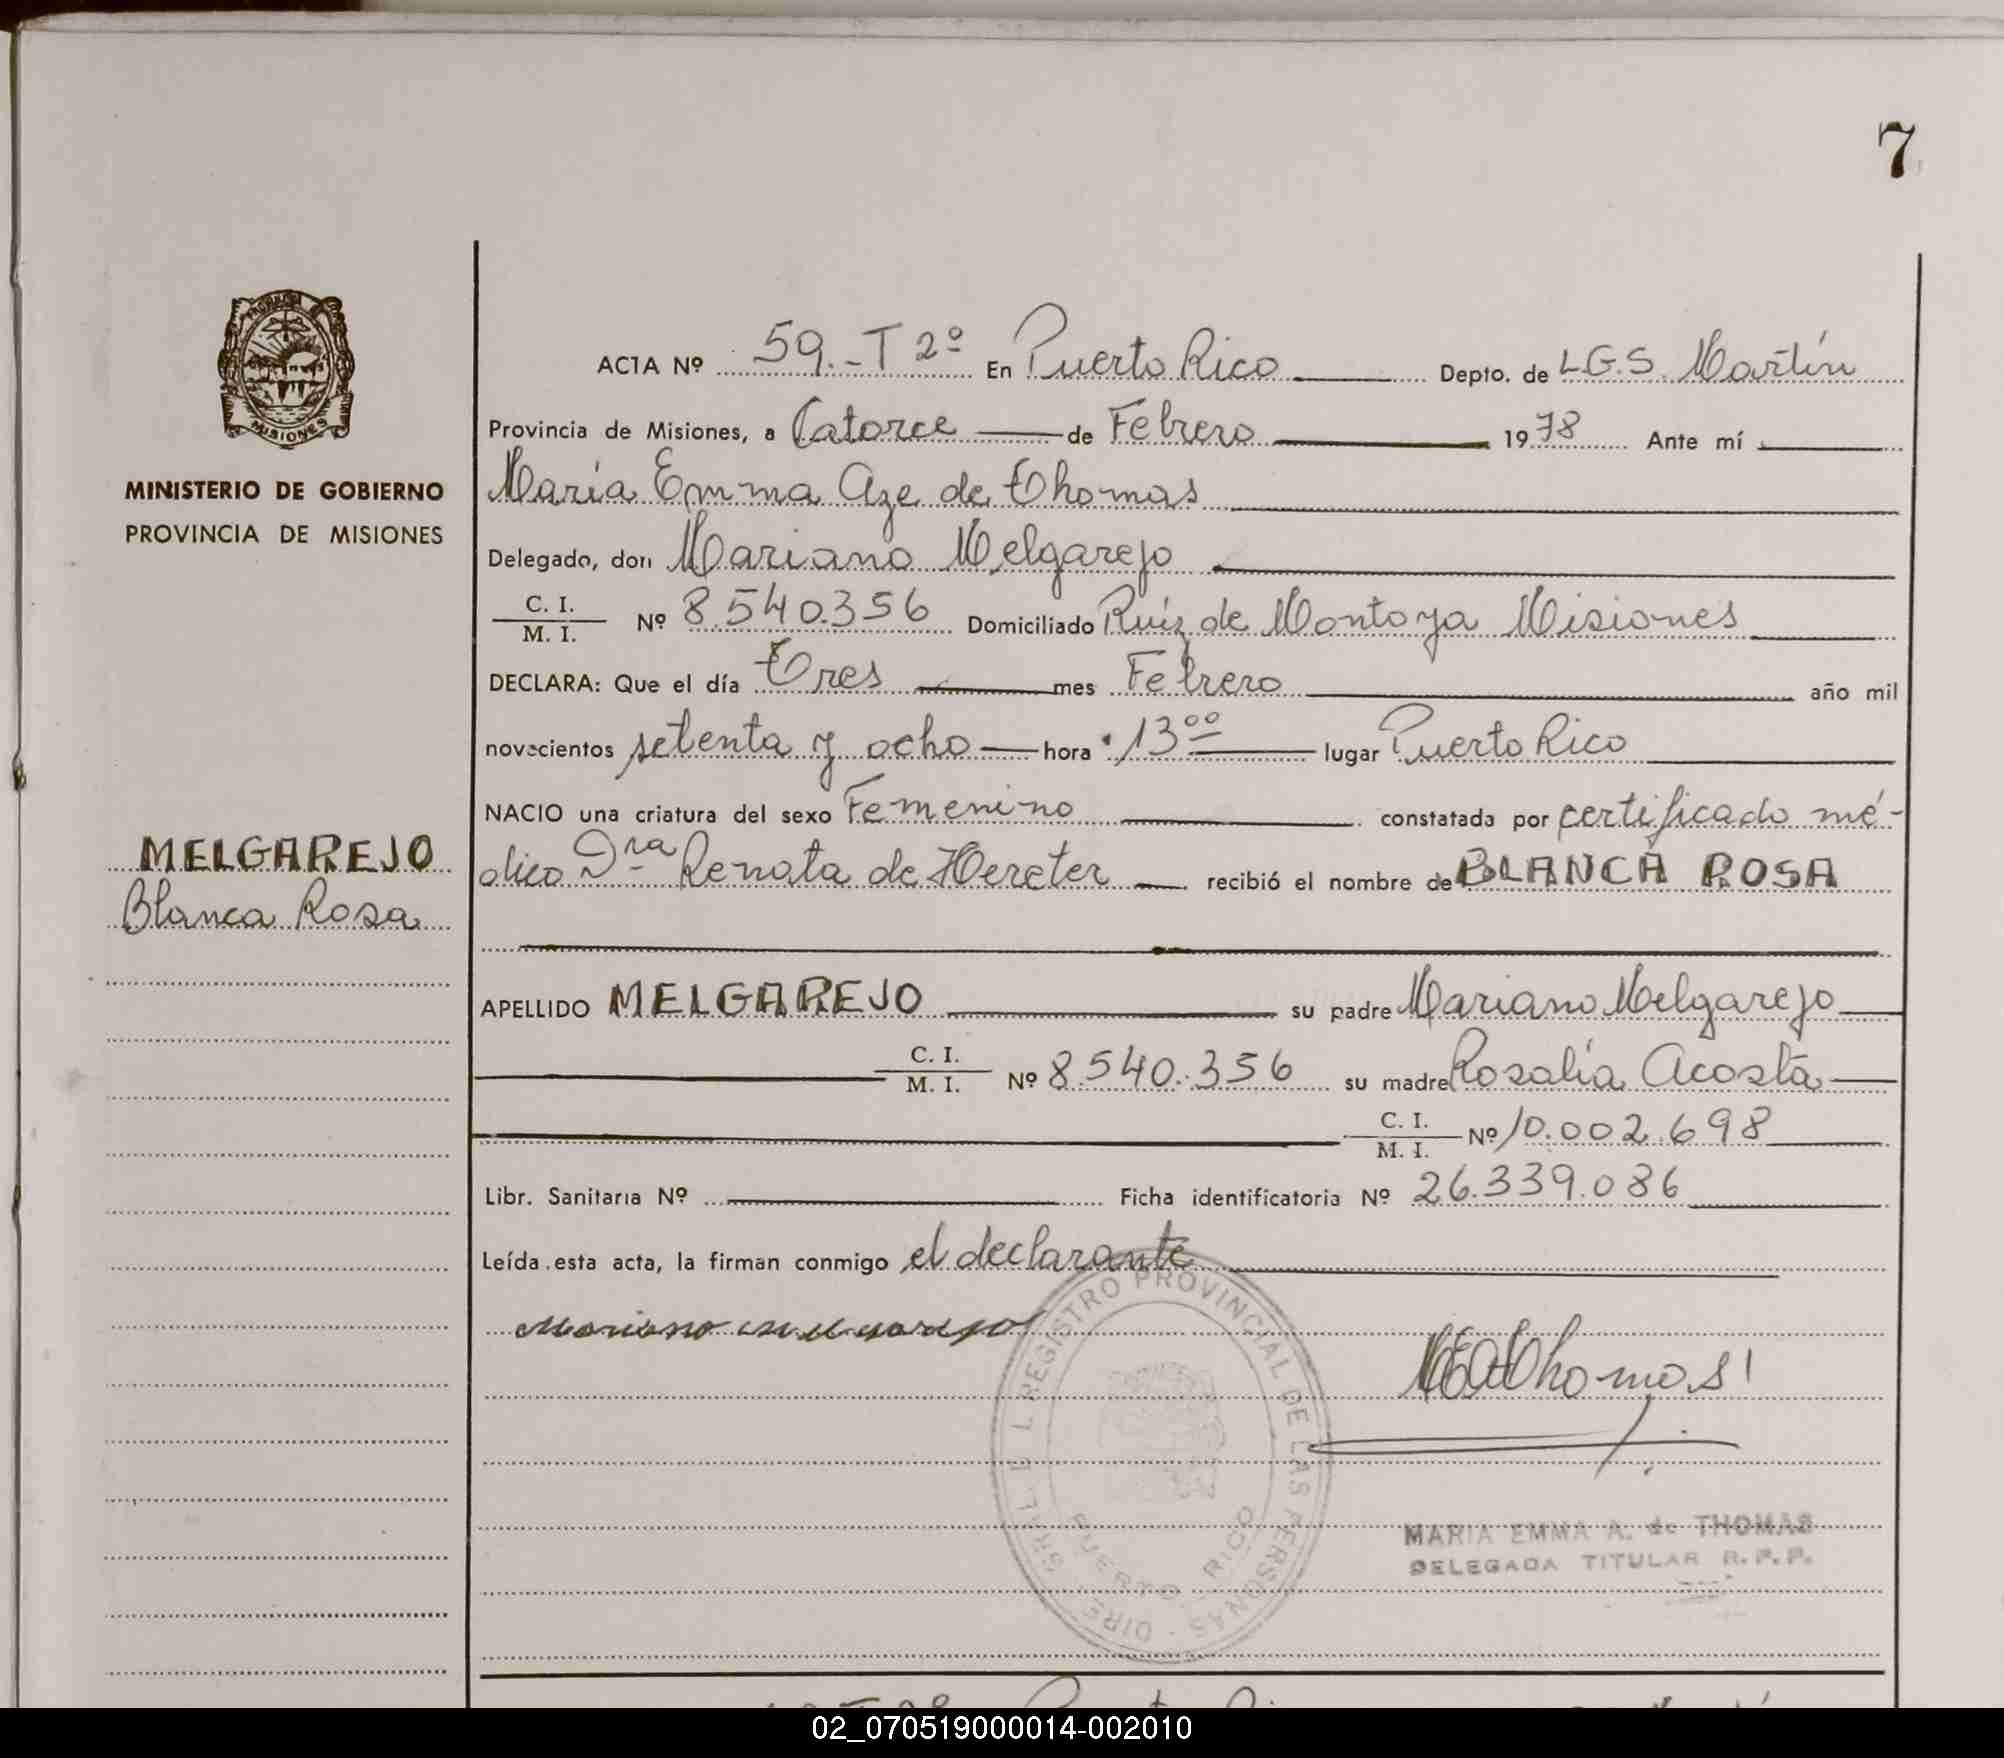 7
MISIONES
MINISTERIO DE GOBIERNO
PROVINCIA DE MISIONES
MELGAREJO
Blanca Rosa
ACTA Nº 59.-T 2º En Puerto Rico Depto. de L.G.S. Martín
Provincia de Misiones, a Catorce de Febrero 1978 Ante mí
María Emma Aze de Thomas
Delegado, don Mariano Melgarejo
C. I.
M. I. Nº 8.540.356 Domiciliado Ruíz de Montoya Misiones
DECLARA: Que el día Tres mes Febrero año mil
novecientos setenta y ocho hora 13ºº lugar Puerto Rico
NACIO una criatura del sexo Femenino constatada por certificado mé-
dico Dra Renata de Hereter recibió el nombre de BLANCA ROSA
APELLIDO MELGAREJO su padre Mariano Melgarejo
C. I.
M. I. Nº 8.540.356 su madre Rosalía Acosta
C. I.
M. I. Nº 10.002.698
Libr. Sanitaria Nº Ficha identificatoria Nº 26.339.086
Leída esta acta, la firman conmigo el declarante
Mariano Melgarejo
MEAThomas
REGISTRO PROVINCIAL DE LAS PERSONAS
PUERTO RICO
MARIA EMMA A. de THOMAS
DELEGADA TITULAR R.P.P.
02_070519000014-002010